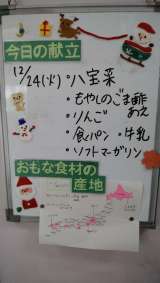 今日の献立
12/24(火)・八宝菜
・もやしのごま酢
あえ
・りんご
・食パン ・牛乳
・ソフトマーガリン
おもな食材の
産地